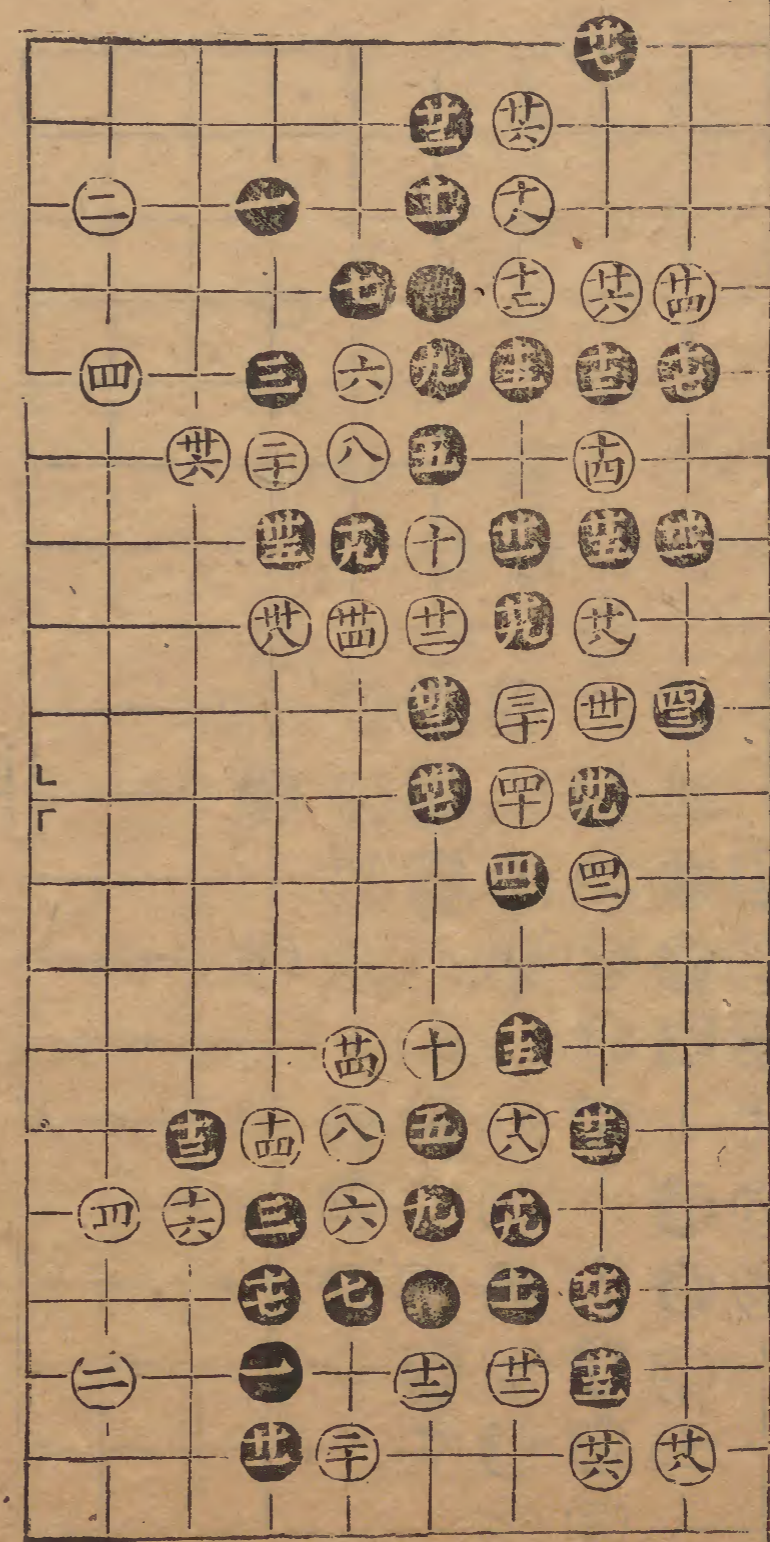 廿七
廿六
二 一 十七 十八
七 十二 廿六 廿四
四 三 六 九 十五 十三 十七
卅六 二十 八 五 十四
卅五 十九 十 廿一 廿五 卅一
卅八 卅四 廿二 廿九 廿八
廿三 三十 卅二 四三
卅七 四十 卅九
四一 四二
廿四 十 十五
十三 十四 八 五 十八 廿三
四 十六 三 六 九 十九
十七 七 十一 廿七
二 一 十二 廿二 廿五
廿一 二十 廿六 廿八